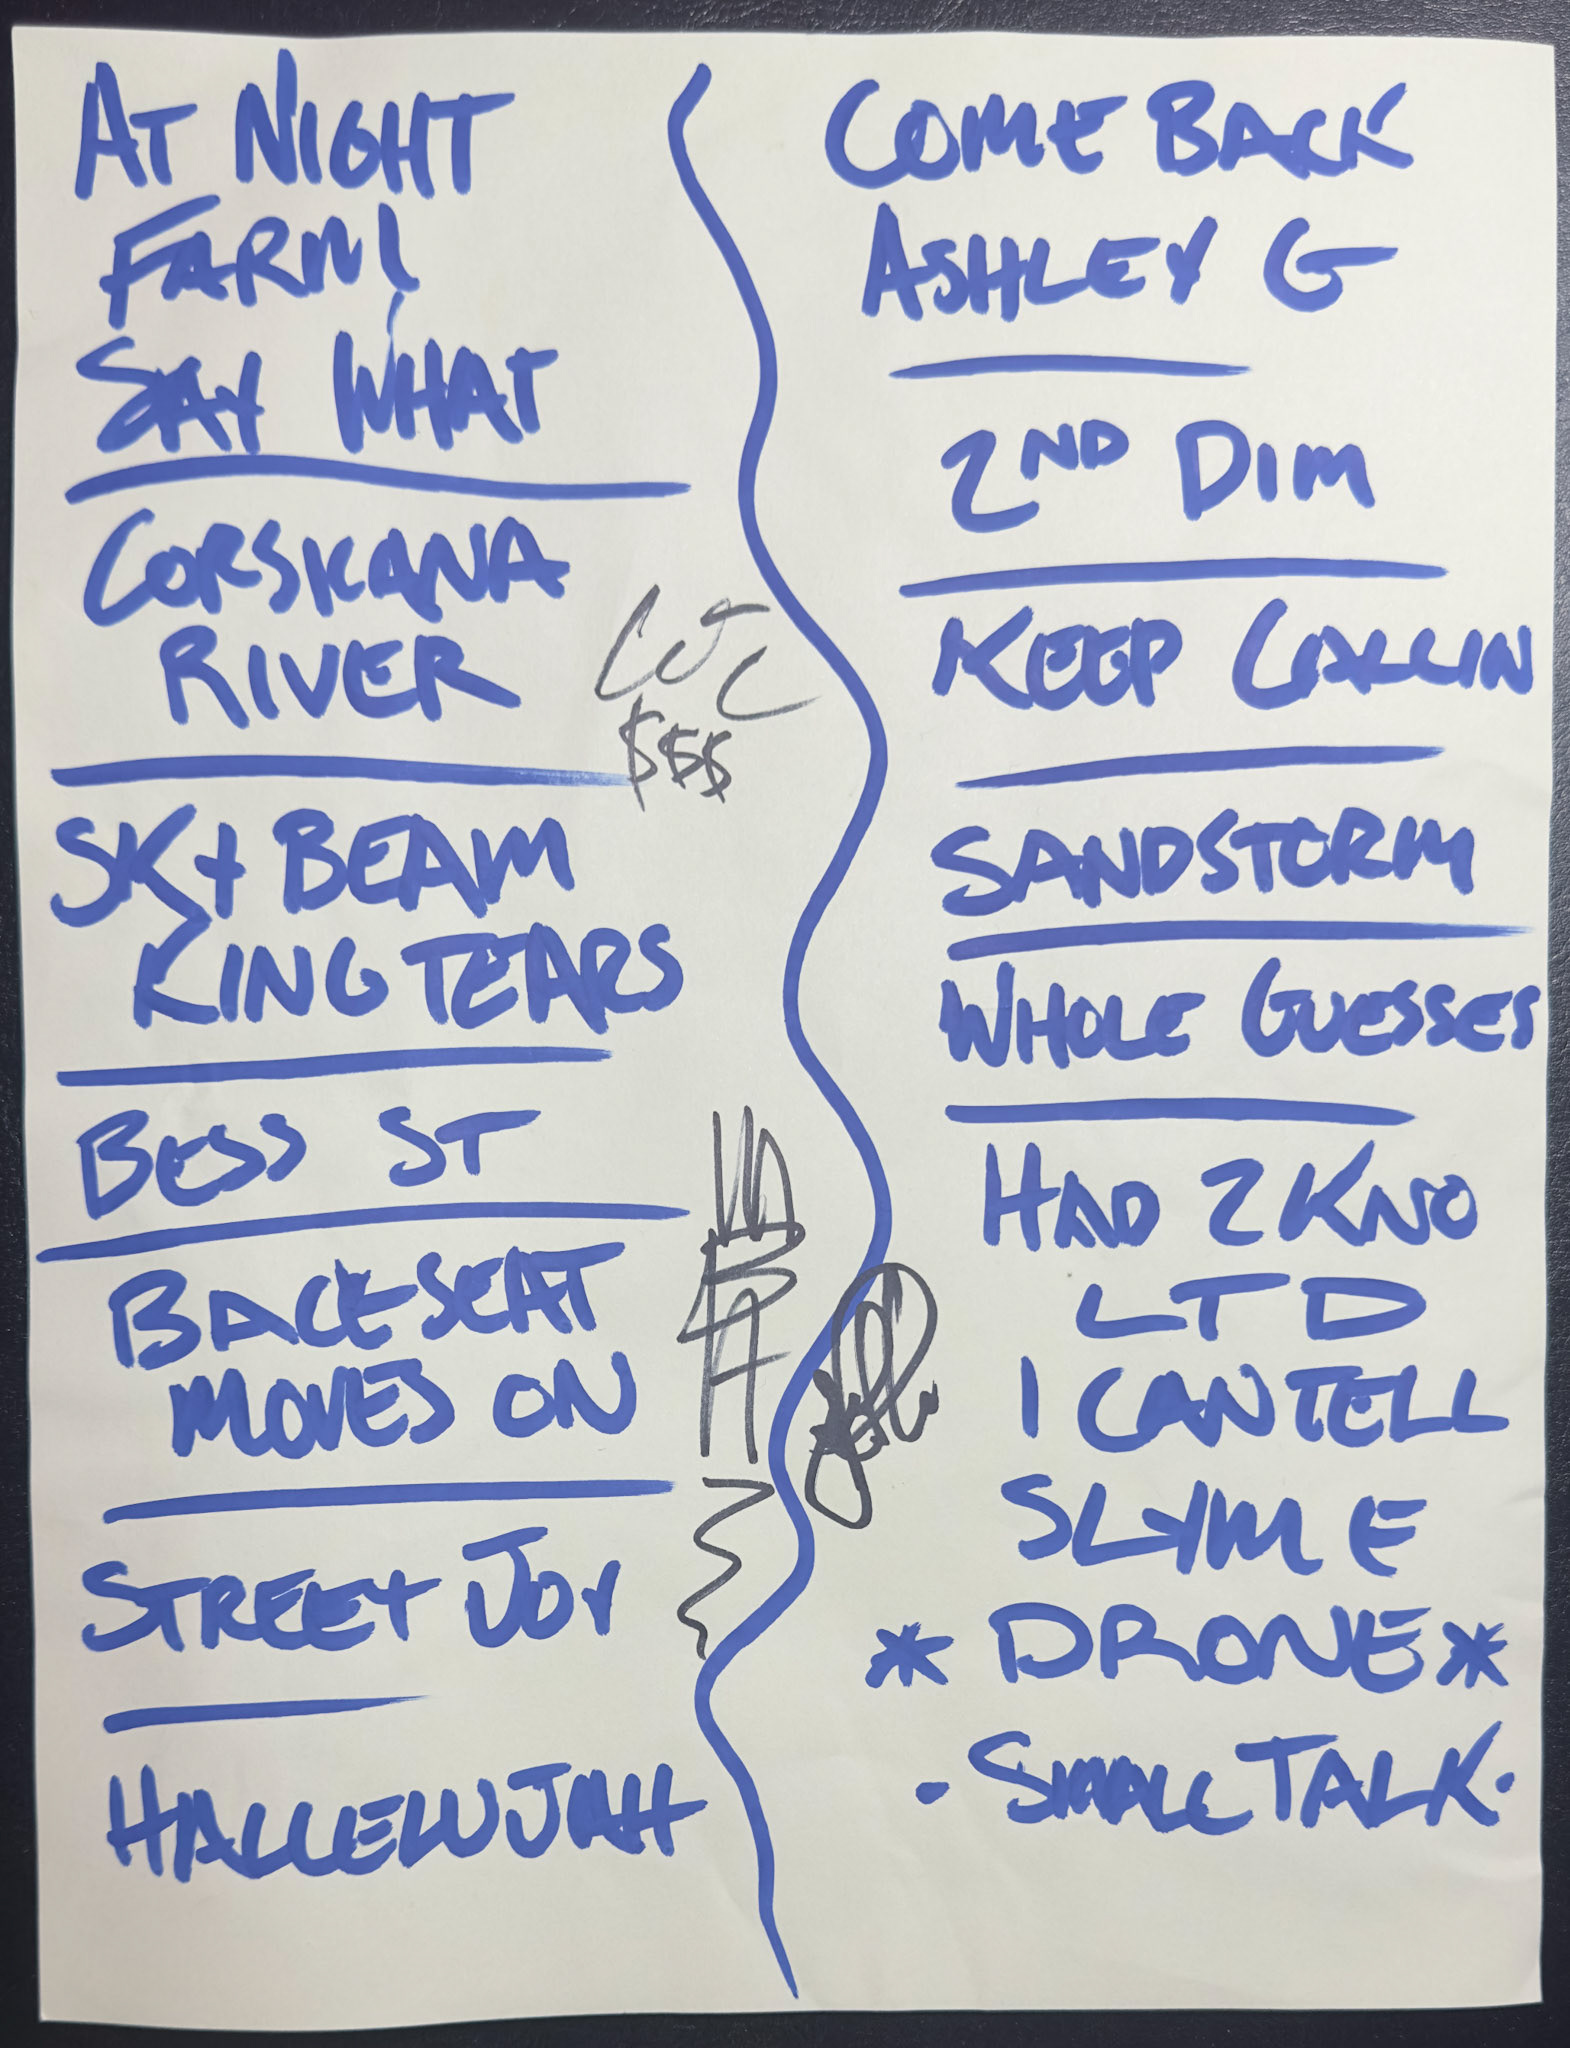 AT NIGHT
FARM!
SAY WHAT
CORSKANA
RIVER
SKY BEAM
KING TEARS
BESS ST
BACKSEAT
MOVES ON
STREET JOY
HALLELUJAH
$$$
COME BACK
ASHLEY G
2ND DIM
KEEP CALLIN
SANDSTORM
WHOLE GUESSES
HAD 2 KNO
LTD
I CAN TELL
SLYME
* DRONE *
- SMALL TALK -